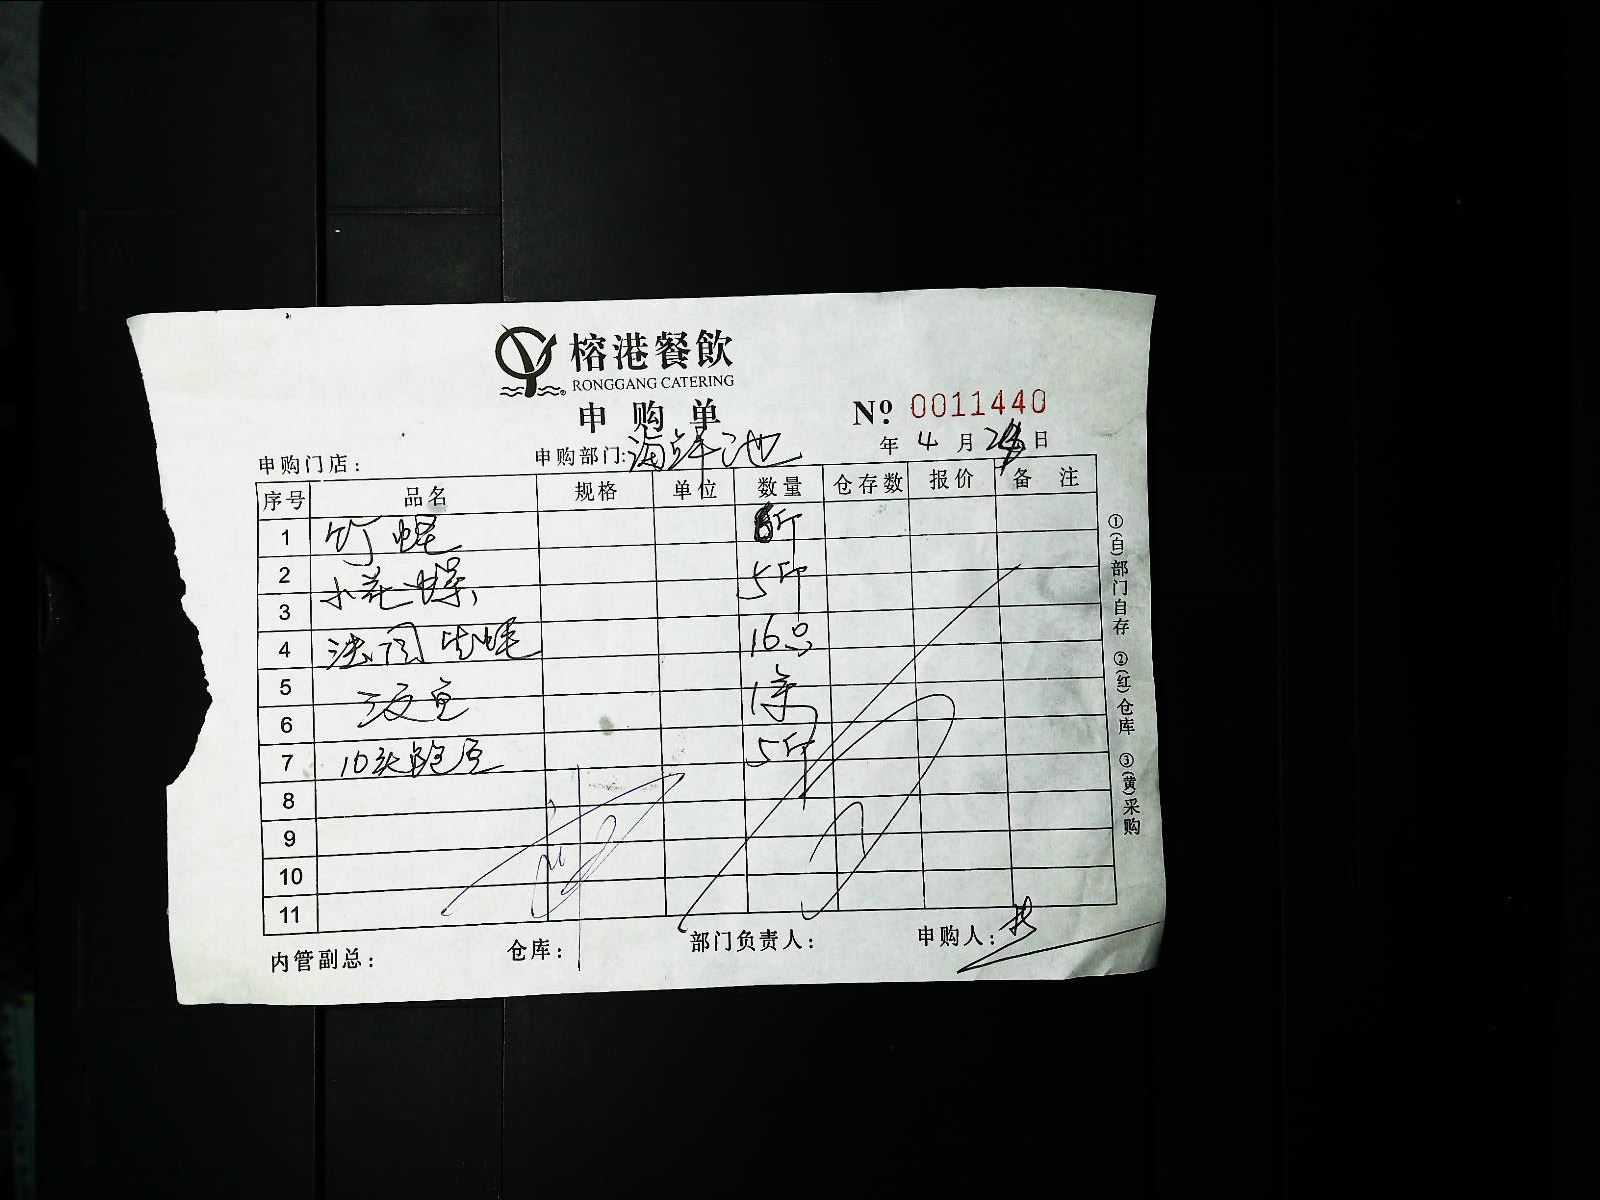 榕港餐飲
RONGGANG CATERING
申购单
№ 0011440
申购门店： 申购部门:海鲜池 年 4 月 日
序号 品名 规格 单位 数量 仓存数 报价 备 注
1 竹蛏 斤
2
小花螺 5斤
3
4 法国生蚝 16只
5
6 鱼 1条
7 10头鲍鱼 5斤
8
9
10
11
内管副总： 仓库： 部门负责人： 申购人：
①(白)部门自存 ②(红)仓库 ③(黄)采购